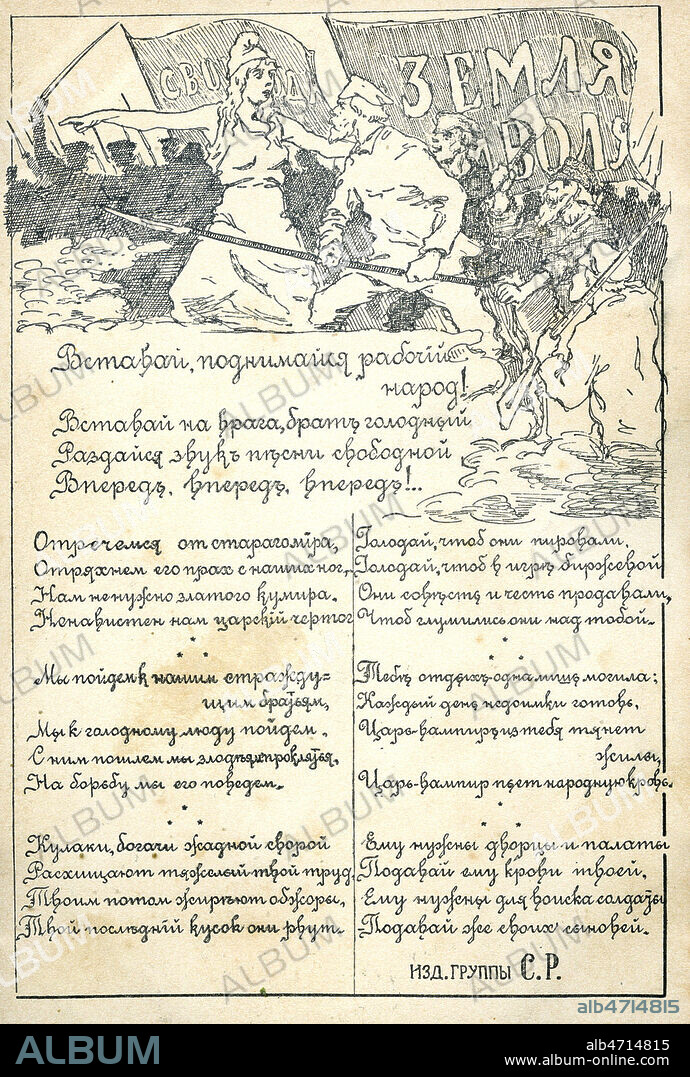 СВОБОДА
ЗЕМЛЯ
ВОЛЯ
Вставай, поднимайся рабочій
народ!
Вставай на врага, братъ голодный
Раздайся звукъ пѣсни свободной
Впередъ, впередъ, впередъ!..
Отречемся от стараго міра,
Отряхнем его прах с наших ног,
Нам ненужно златого кумира.
Ненавистен нам царскій чертог
Мы пойдем к нашим стражду=
щим братьям,
Мы к голодному люду пойдем.
С ним пошлем мы злодѣям проклятья,
На борьбу мы его поведем.
Кулаки, богачи жадной сворой
Расхищают тяжелый твой труд,
Твоим потом жирѣют обжоры,
Твой послѣдній кусок они рвут.
Голодай, чтоб они пировали,
Голодай, чтоб в игрѣ биржевой
Они совѣсть и честь продавали,
Чтоб глумились они над тобой.
Тебѣ отдыхъ одна лишь могила;
Каждый день недоимки готовь,
Царь-вампиръ из тебя тянет
жилы,
Царь-вампир пьет народную кровь.
Ему нужны дворцы и палаты
Подавай ему крови твоей,
Ему нужны для войска солдаты
Подавай же своих сыновей.
ИЗД. ГРУППЫ С.Р.
alb4714815
ALBUM
alb4714815
www.album-online.com